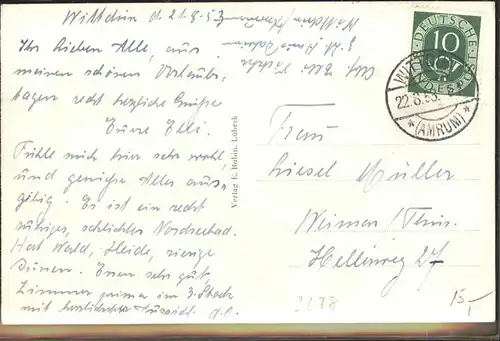 Wittdün d. 21.8.53
Ihr lieben Alle, aus
meinen schönen Urlaubs-
tagen recht herzliche Grüße
Eure Elli.
Fühle mich hier sehr wohl
und genieße Alles aus-
giebig. Es ist ein recht
ruhiges, schlichtes Nordseebad.
Hat Wald, Heide, riesige
Dünen. Essen sehr gut,
Zimmer prima im 3. Stock
mit herrlichster d.O.
Verlag E. Rodin, Lübeck
DEUTSCHE
10
BUNDESPOST
22.8.53.
(AMRUM)
Frau
Liesel Müller
Weimar/Thür.
Hellerweg 27
3178
15,-